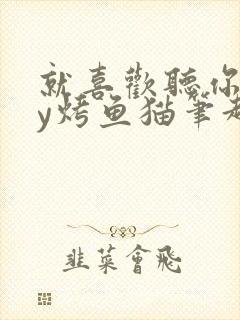 就喜歡聽你
y烤鱼猫筆趣
韭菜會飛